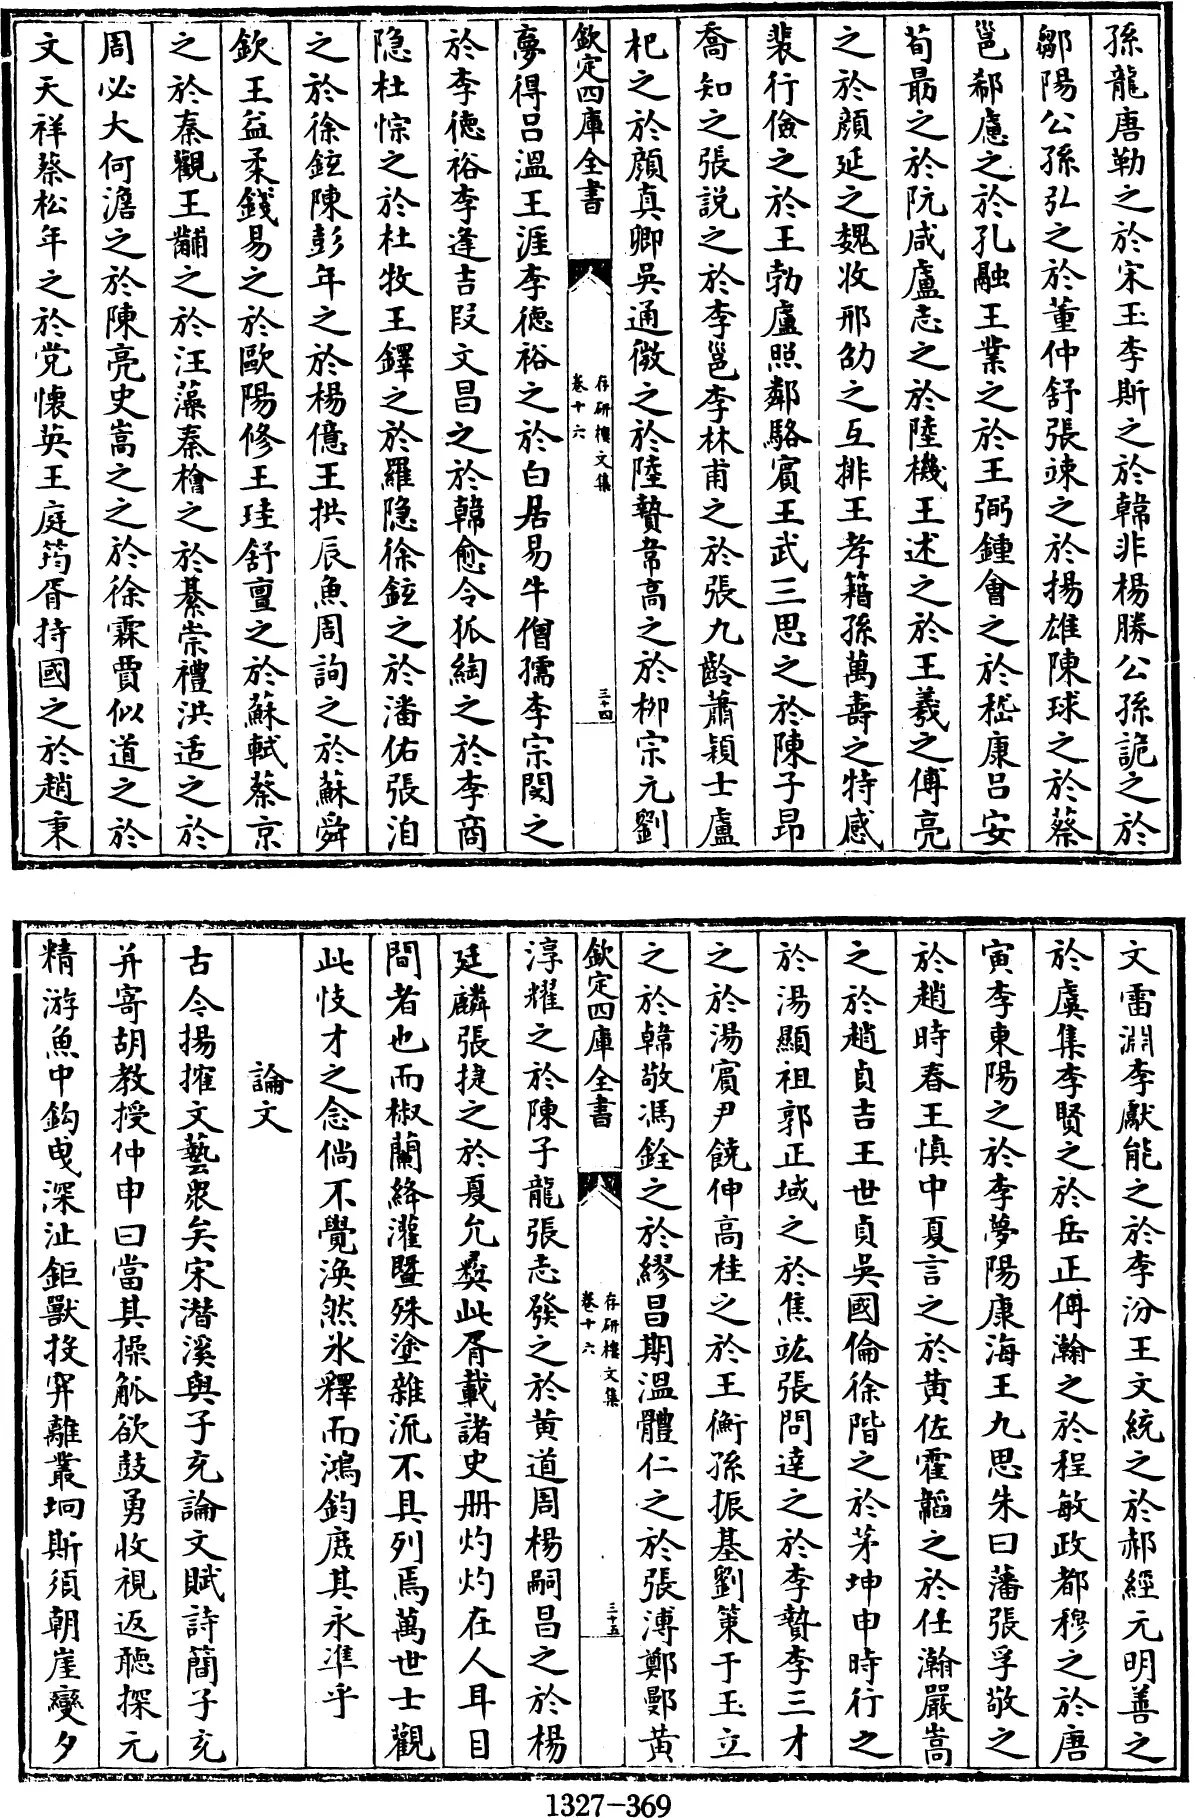 孫龍唐勒之於宋玉李斯之於韓非楊勝公孫詭之於
鄒陽公孫弘之於董仲舒張竦之於揚雄陳球之於蔡
邕郗慮之於孔融王業之於王弼鍾會之於嵇康呂安
荀勗之於阮咸盧志之於陸機王述之於王羲之傅亮
之於顔延之魏收邢劭之互排王孝籍孫萬壽之特感
裴行儉之於王勃盧照鄰駱賓王武三思之於陳子昂
喬知之張説之於李邕李林甫之於張九齡蕭穎士盧
杞之於顔真卿吳通微之於陸贄常高之於柳宗元劉
欽定四庫全書
存研樓文集
卷十六
三十四
夢得呂溫王涯李德裕之於白居易牛僧孺李宗閔之
於李德裕李逢吉段文昌之於韓愈令狐綯之於李商
隱杜悰之於杜牧王鐸之於羅隱徐鉉之於潘佑張洎
之於徐鉉陳彭年之於楊億王拱辰魚周詢之於蘇舜
欽王益柔錢易之於歐陽修王珪舒亶之於蘇軾蔡京
之於秦觀王黼之於汪藻秦檜之於綦崇禮洪适之於
周必大何澹之於陳亮史嵩之之於徐霖賈似道之於
文天祥蔡松年之於党懷英王庭筠胥持國之於趙秉
文雷淵李獻能之於李汾王文統之於郝經元明善之
於虞集李賢之於岳正傅瀚之於程敏政都穆之於唐
寅李東陽之於李夢陽康海王九思朱曰藩張孚敬之
於趙時春王慎中夏言之於黄佐霍韜之於任瀚嚴嵩
之於趙貞吉王世貞吳國倫徐階之於茅坤申時行之
於湯顯祖郭正域之於焦竑張問達之於李贄李三才
之於湯賓尹饒伸高桂之於王衡孫振基劉策于玉立
之於韓敬馮銓之於繆昌期溫體仁之於張溥鄭鄤黄
欽定四庫全書
存研樓文集
卷十六
三十五
淳耀之於陳子龍張志發之於黄道周楊嗣昌之於楊
廷麟張捷之於夏允彝此胥載諸史册灼灼在人耳目
間者也而椒蘭絳灌暨殊塗雜流不具列焉萬世士觀
此忮才之念倘不覺渙然氷釋而鴻鈞庻其永準乎
論文
古今揚搉文藝衆矣宋潛溪與子充論文賦詩簡子充
并寄胡教授仲申曰當其操觚欲鼓勇收視返聽探元
精游魚中鈎曳深沚鉅獸投穽離叢坰斯須朝崖變夕
1327-369